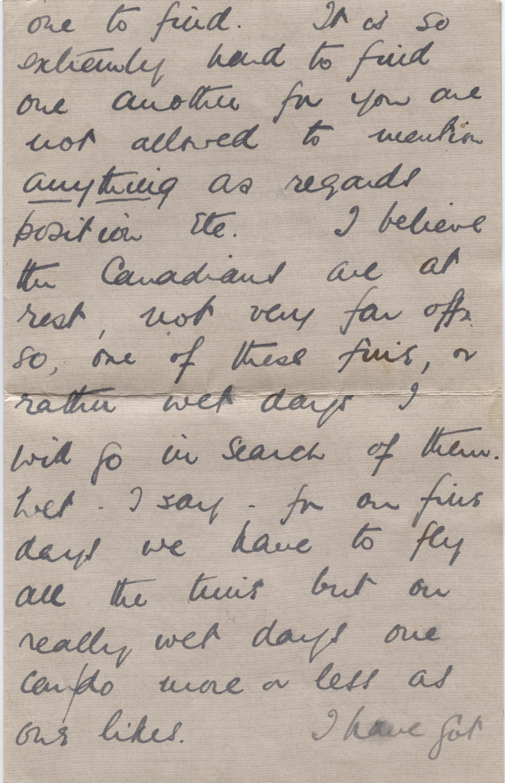 one to find. It is so
extremely hard to find
one another for you are
not allowed to mention
anything as regards
position Etc. I believe
the Canadians are at
rest, not very far off.
so, one of these fine, or
rather wet days I
will go in search of them.
Wet - I say - for on fine
days we have to fly
all the time but on
really wet days one
can/do more or less as
one likes. I have got